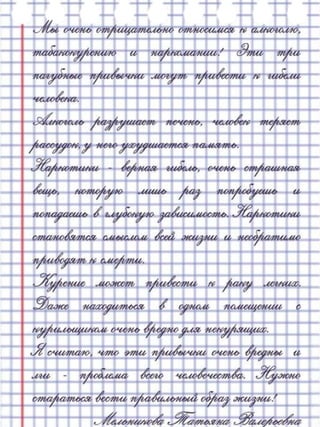 Мы очень отрицательно относимся к алкоголю,
табакокурению и наркомании! Эти три
пагубные привычки могут привести к гибели
человека.
Алкоголь разрушает печень, человек теряет
рассудок, у него ухудшается память.
Наркотики - верная гибель, очень страшная
вещь, которую лишь раз попробуешь и
попадаешь в глубокую зависимость. Наркотики
становятся смыслом всей жизни и необратимо
приводят к смерти.
Курение может привести к раку легких.
Даже находиться в одном помещении с
курильщиком очень вредно для некурящих.
Я считаю, что эти привычки очень вредны и
эти - проблема всего человечества. Нужно
стараться вести правильный образ жизни!
Мельникова Татьяна Валерьевна